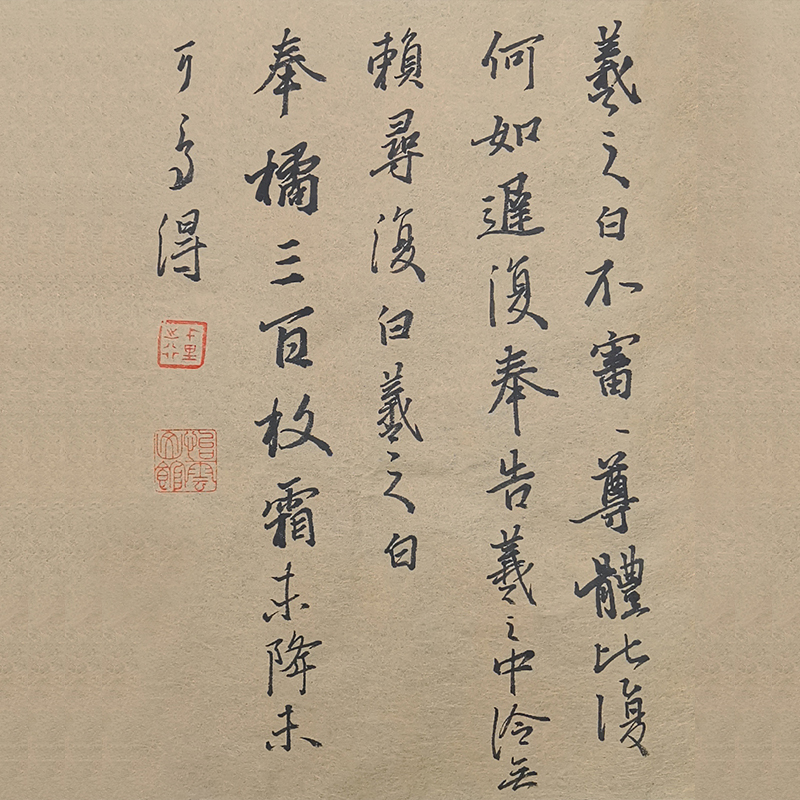 羲之白不審、尊體比復
何如遲復奉告羲之中冷無
賴尋復白羲之白
奉橘三百枚霜未降未
可多得
千里之行